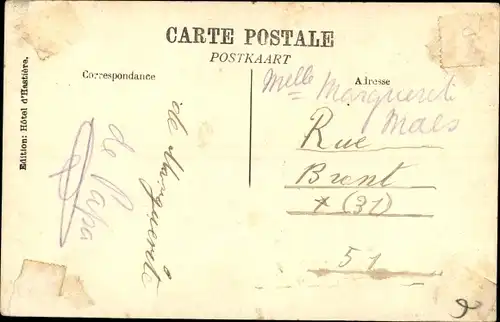 CARTE POSTALE
POSTKAART
Correspondance
Adresse
Edition: Hôtel d'Hastière.
de Marguerite
de Papa
Melle Marguerite
Maes
Rue
(31)
51